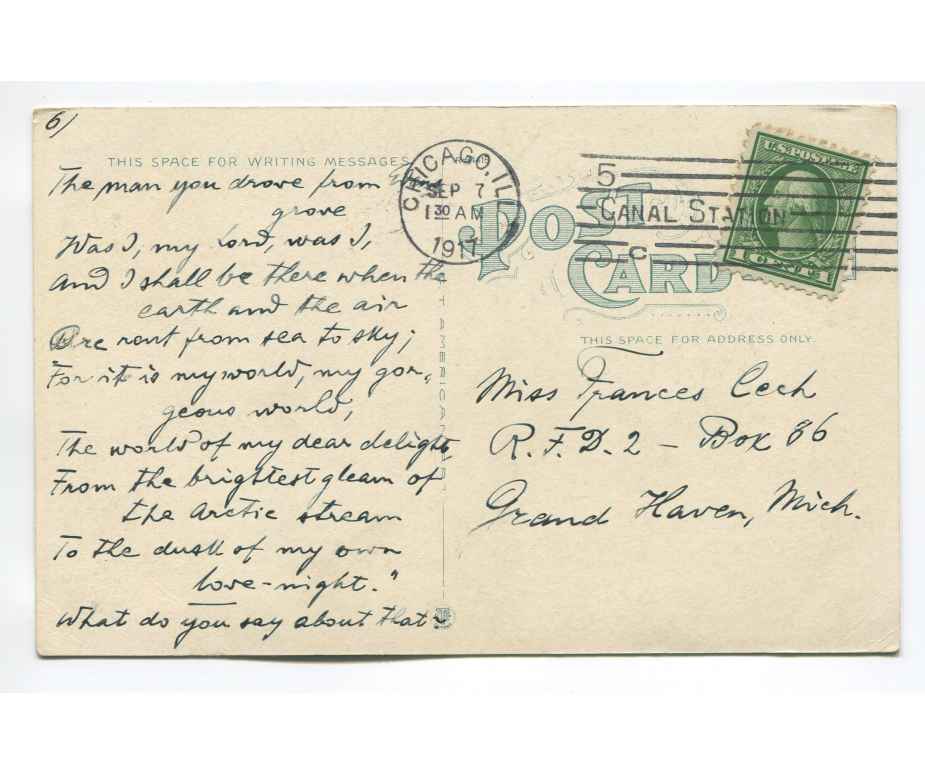 6/
THIS SPACE FOR WRITING MESSAGES
The man you drove from Eden's
grove
Was I, my Lord, was I,
And I shall be there when the
earth and the air
Are rent from sea to sky;
"For it is my world, my gor-
geous world,
The world of my dear delight,
From the brightest gleam of
the Arctic stream
To the dusk of my own
love-night."
What do you say about that~
CHICAGO, ILL
SEP 7
1 30 AM
1917
5
CANAL STATION
C
U.S. POSTAGE
1 CENT 1
POST
CARD
THIS SPACE FOR ADDRESS ONLY.
Miss Frances Cech
R.F.D. 2 – Box 86
Grand Haven, Mich.